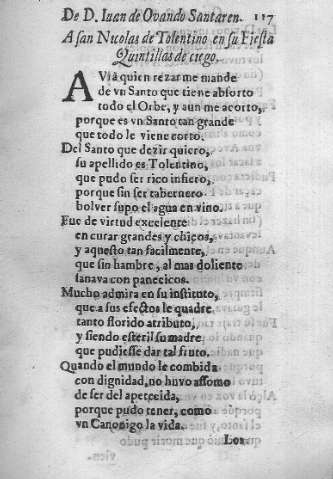 De D. Iuan de Ovando Santaren. 117
A san Nicolas de Tolentino en su Fiesta
Quintillas de ciego.
AViâ quien rezar me mande
de vn Santo que tiene absorto
todo el Orbe, y aun me acorto,
porque es vn Santo tan grande
que todo le viene corto.
Del Santo que dezir quiero,
su apellido es Tolentino,
que pudo ser rico infiero,
porque sin ser tabernero
bolver supo el agua en vino.
Fue de virtud excelente
en curar grandes y chicos,
y aquesto tan facilmente,
que sin hambre, al mas doliente
sanava con panecicos.
Mucho admira en su instituto,
que a sus efectos le quadre
tanto florido atributo,
y siendo esteril su madre
que pudiesse dar tal fruto.
Quando el mundo le combida
con dignidad, no huvo assomo
de ser del apetecida,
porque pudo tener, como
vn Canonigo la vida.
Los